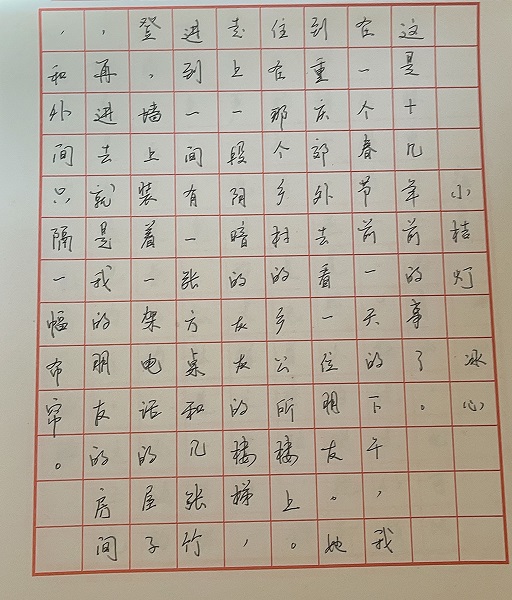 小桔灯 冰心
这是十几年前的事了。
在一个春节前一天的下午,我
到重庆郊外去看一位朋友。她
住在那个乡村的乡公所楼上。
走上一段阴暗的仄仄的楼梯,
进到一间有一张方桌和几张竹
登,墙上装着一架电话的屋子
,再进去就是我的朋友的房间
,和外间只隔一幅布帘。